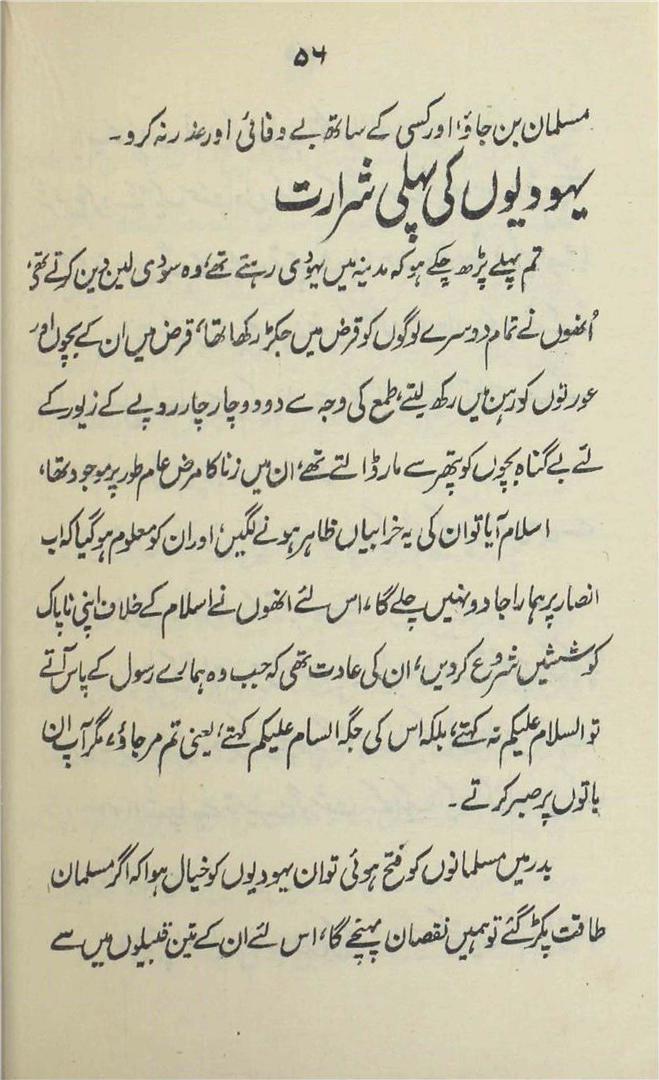 ۵۶
مسلمان بن جاؤ، اور کسی کے ساتھ بے وفائی اور عذر نہ کرو۔
یہودیوں کی پہلی شرارت
تم پہلے پڑھ چکے ہو کہ مدینہ میں یہودی رہتے تھے، وہ سودی لین دین کرتے تھے،
اُنھوں نے تمام دوسرے لوگوں کو قرض میں جکڑ رکھا تھا، قرض میں ان کے بچوں اور
عورتوں کو رہن میں رکھ لیتے، طمع کی وجہ سے دو دو چار چار روپے کے زیور کے
لئے بے گناہ بچوں کو پتھر سے مار ڈالتے تھے، ان میں زنا کا مرض عام طور پر موجود تھا،
اسلام آیا تو ان کی یہ خرابیاں ظاہر ہونے لگیں، اور ان کو معلوم ہو گیا کہ اب
انصار پر ہمارا جادو نہیں چلے گا، اس لئے انھوں نے اسلام کے خلاف اپنی ناپاک
کوششیں شروع کر دیں، ان کی عادت تھی کہ جب وہ ہمارے رسول کے پاس آتے
تو السلام علیکم نہ کہتے، بلکہ اس کی جگہ السام علیکم کہتے، یعنی تم مر جاؤ، مگر آپ ان
باتوں پر صبر کرتے۔
بدر میں مسلمانوں کو فتح ہوئی تو ان یہودیوں کو خیال ہوا کہ اگر مسلمان
طاقت پکڑ گئے تو ہمیں نقصان پہنچے گا، اس لئے ان کے تین قبیلوں میں سے